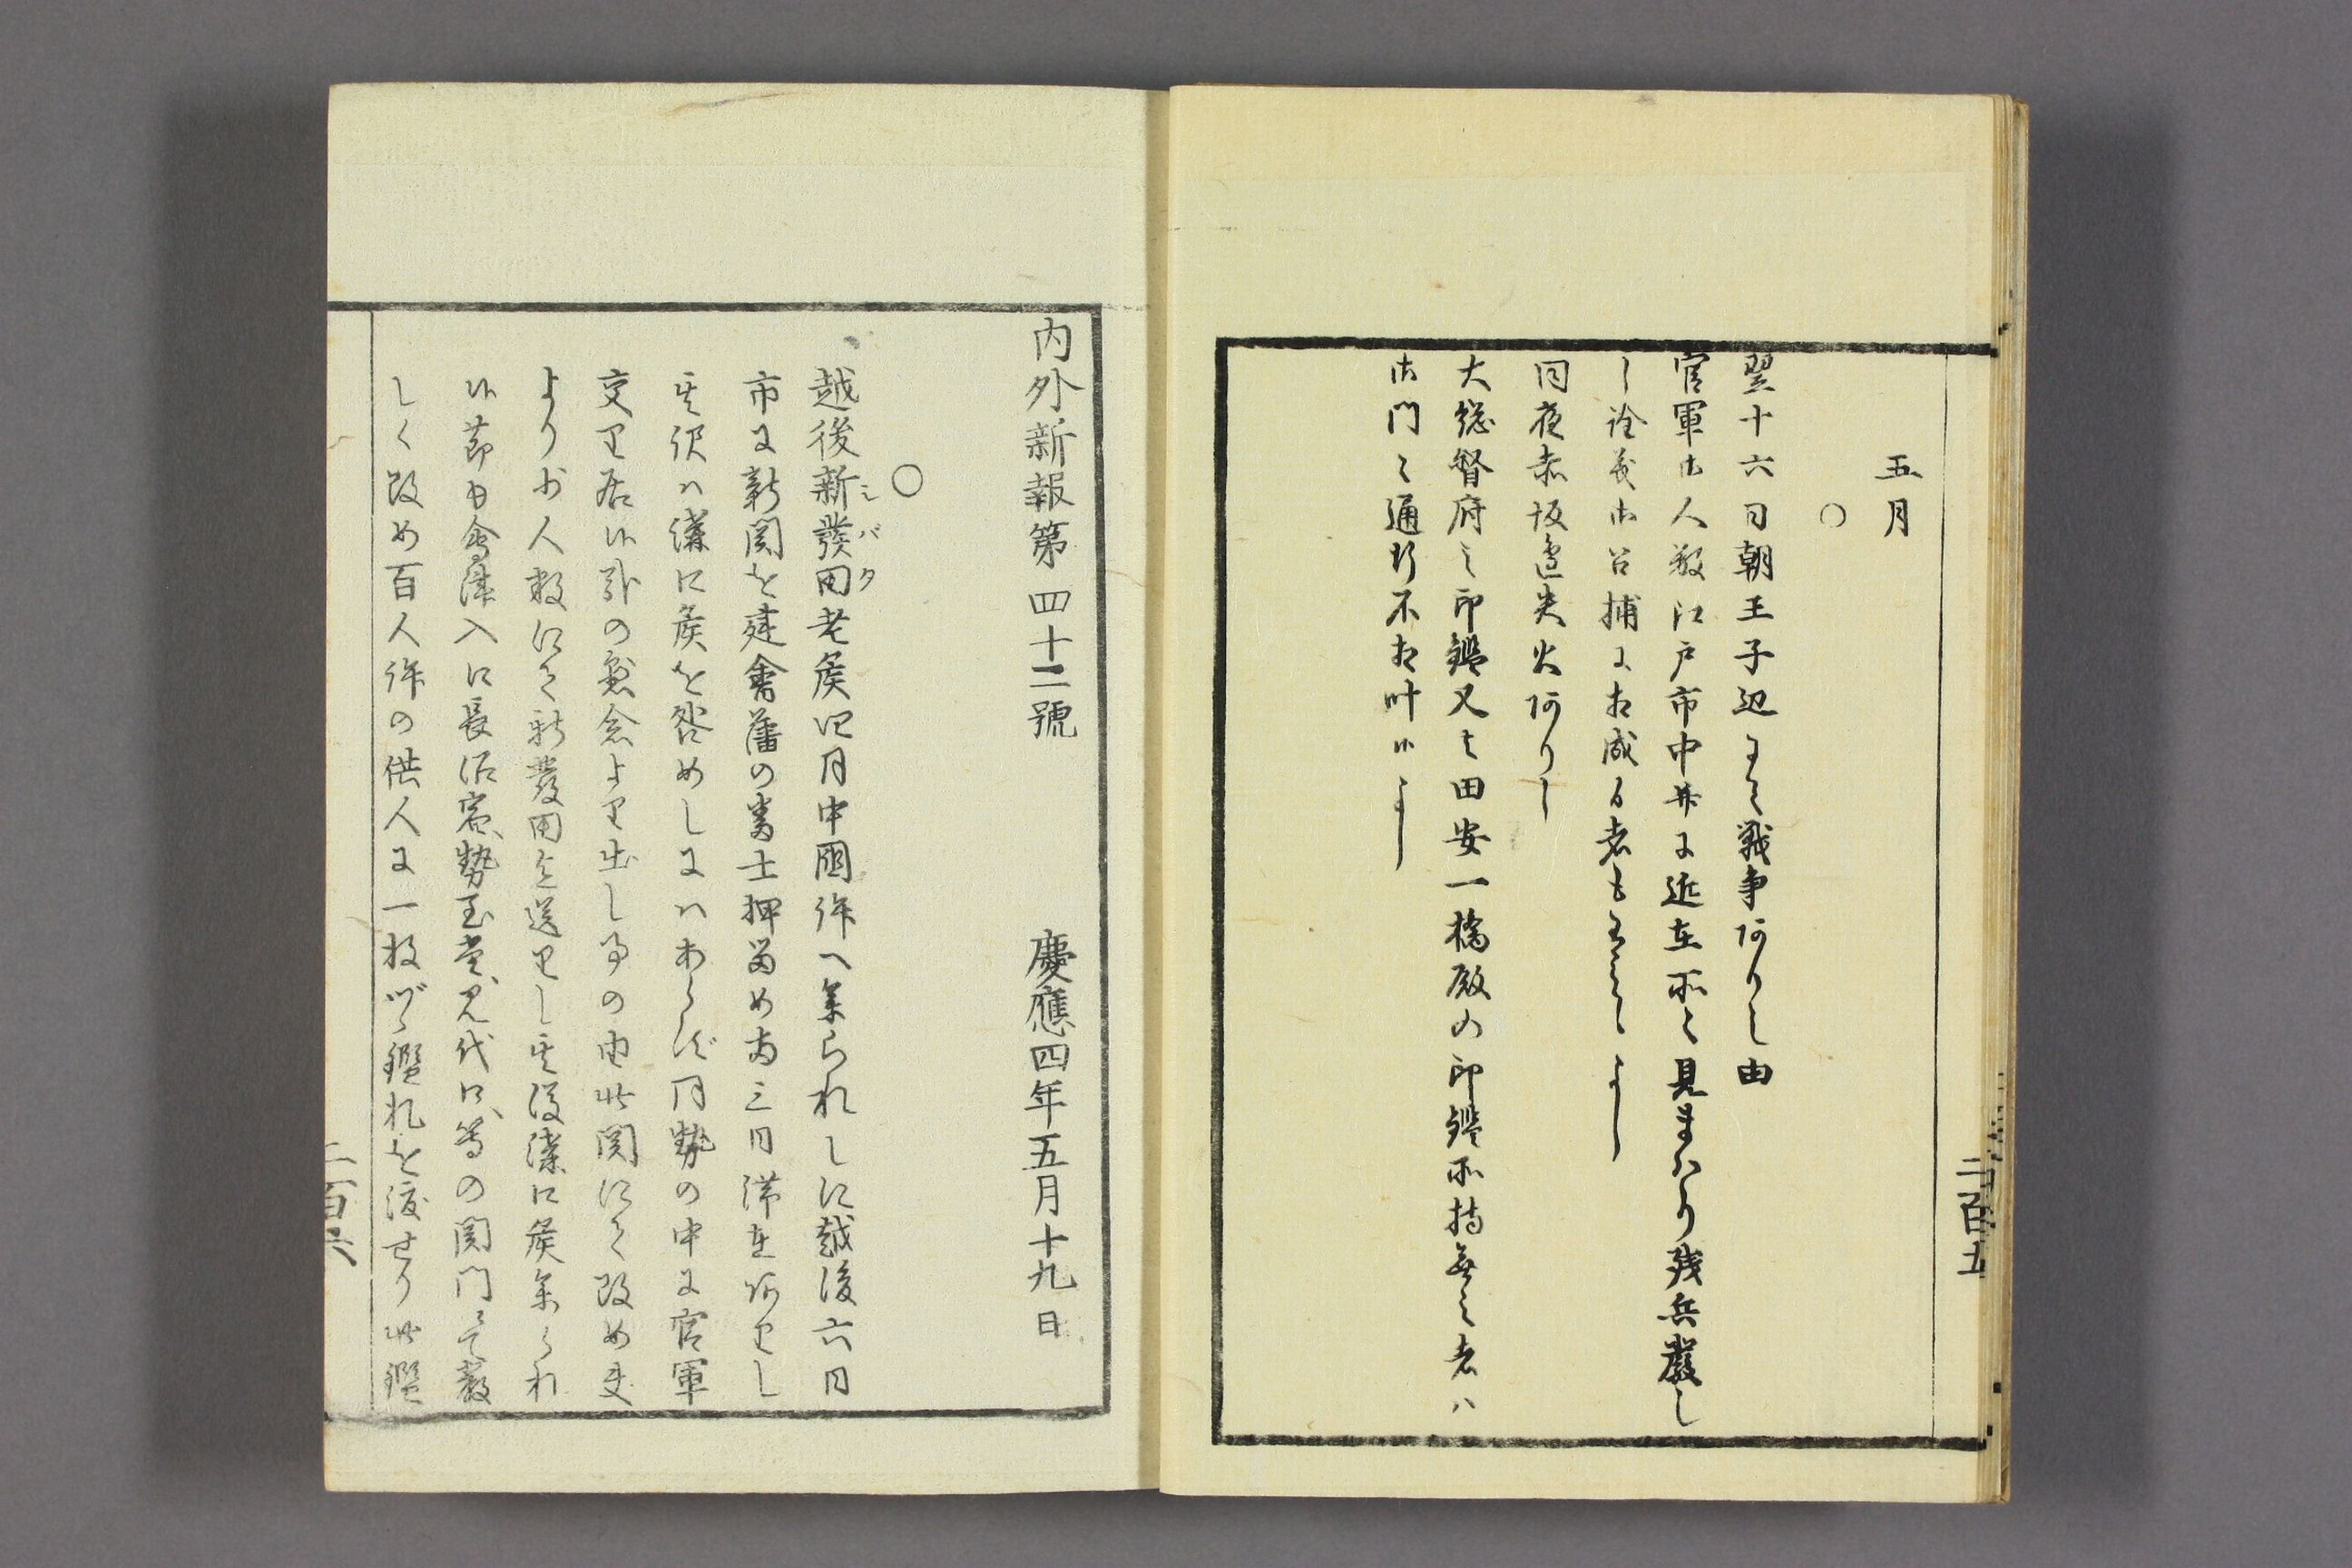 五月
○
翌十六日朝王子辺にて戦争ありし由
官軍御人数江戸市中并に近在所々見まはり残兵厳し
く詮義御召捕に相成る者も有之候よし
同夜赤坂辺失火ありし
大総督府之印鑑又は田安一橋殿の印鑑所持無之者ハ
御門々通行不相叶候よし
二百五
内外新報第四十二號　慶應四年五月十九日
○
越後新發田老侯四月中國許へ参られしに越後六日
シバタ
市に新関を建會藩の番士押留め為三日滞在ありし
其訳ハ溝口侯を咎めしにハあらず同勢の中に官軍
交り居候哉の懸念より出し事の由此関にて改め更
より少人数にて新發田迄送りし其後溝口侯参られ
候節も會津入口長沼宿、勢至堂、見代口、等の関門々にて嚴
しく改め百人許の供人に一枚ヅヽ鑑札を渡せり此鑑
二百六